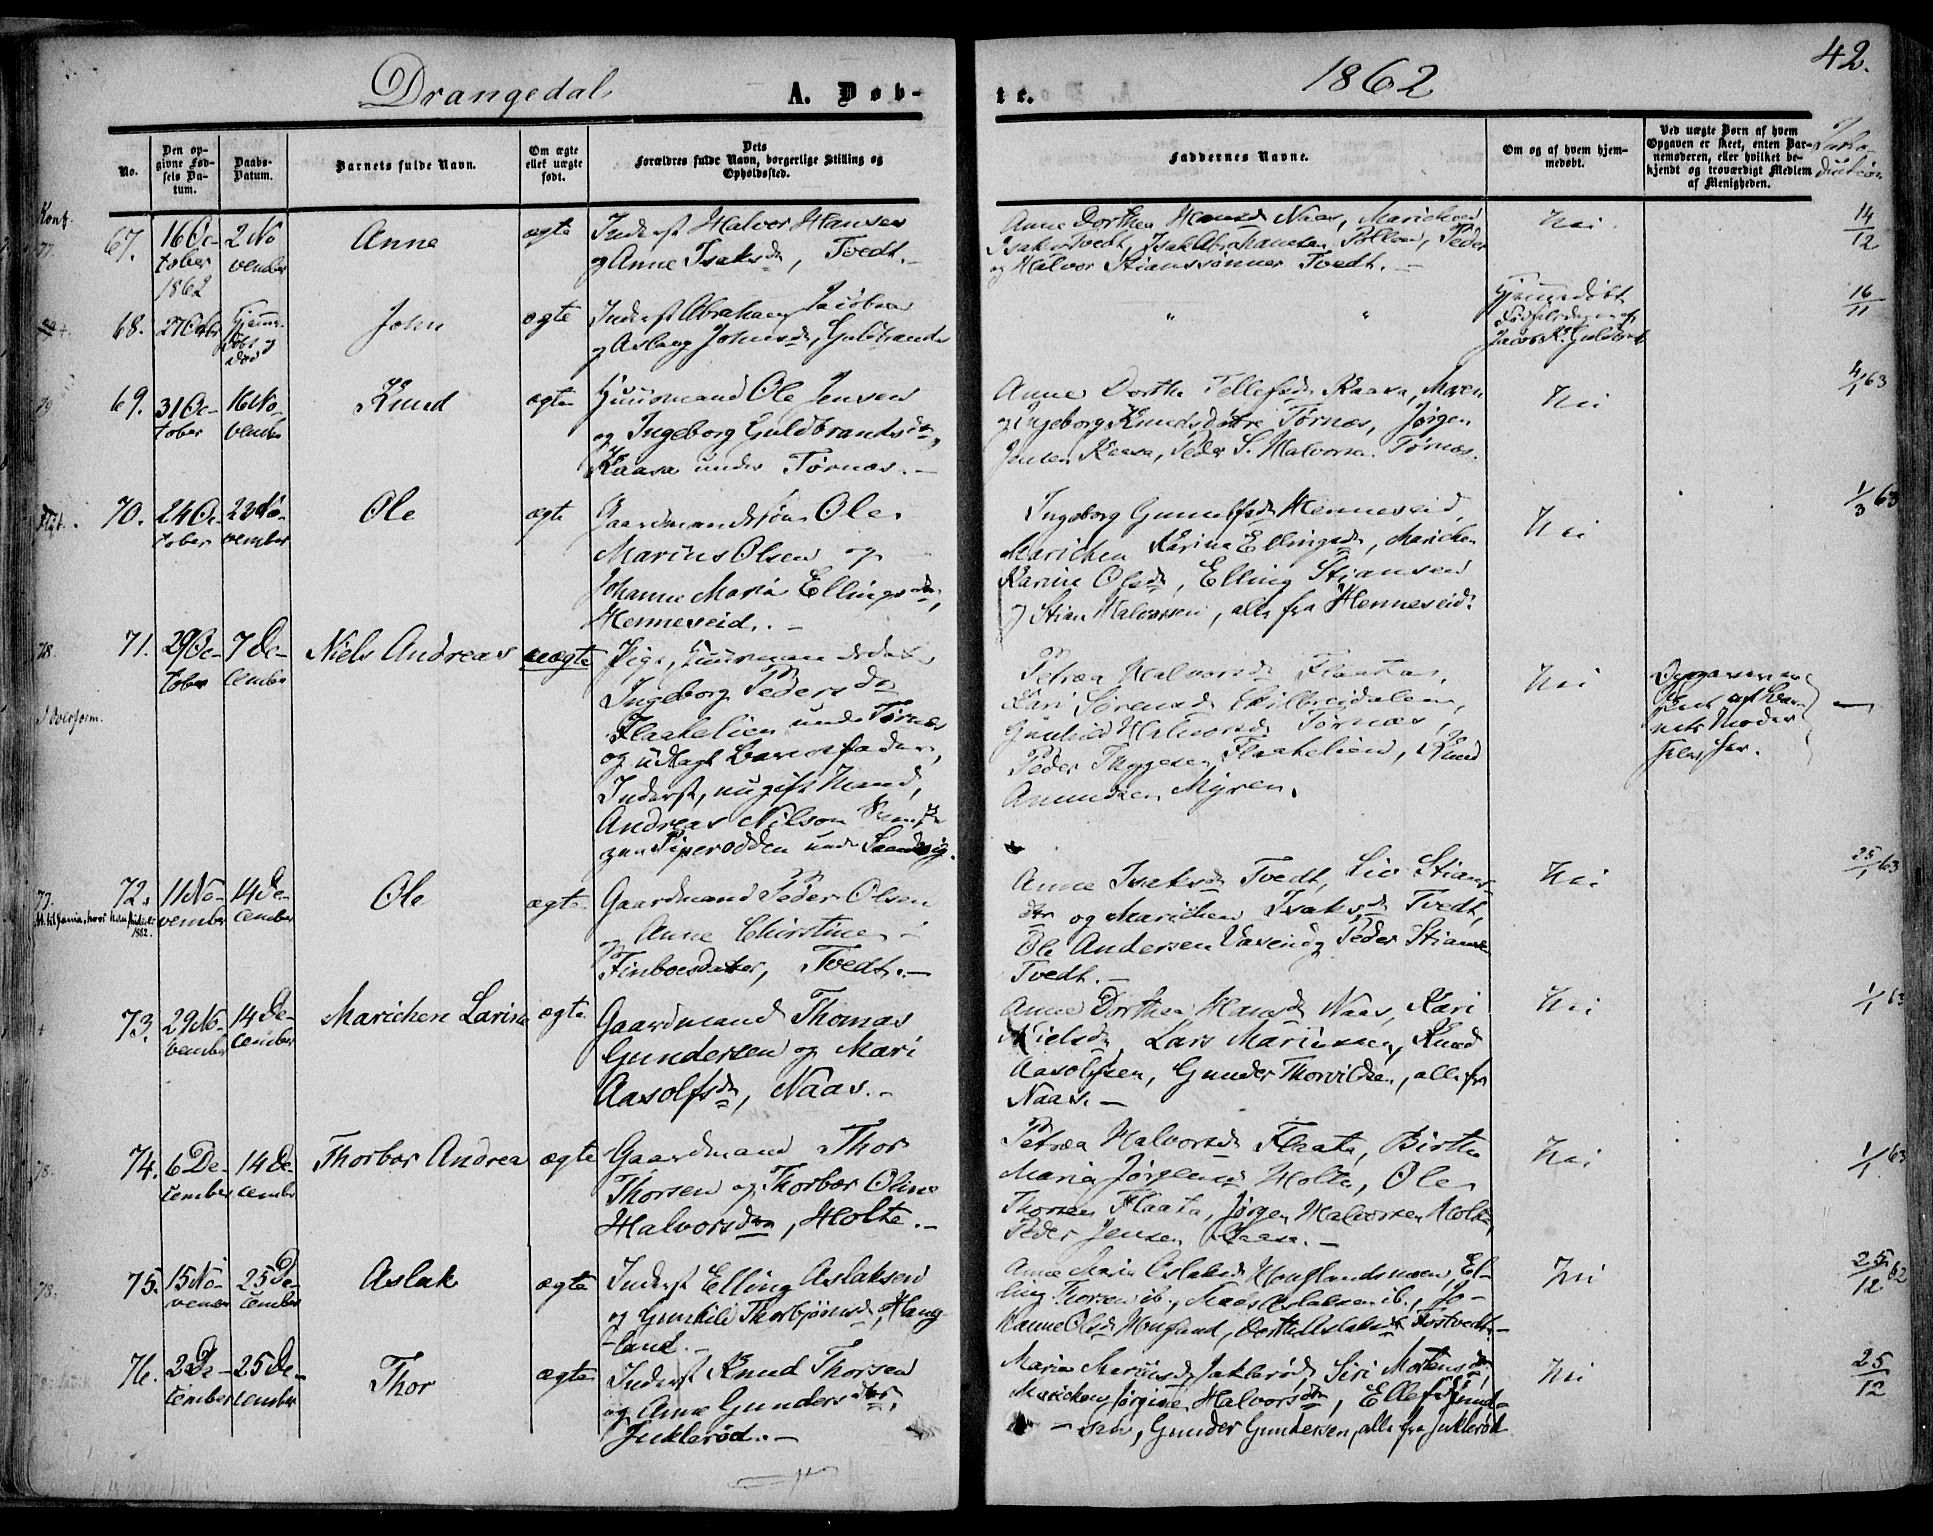 Drangedal A. Døb-
te. 1862 42.
No.
Den op-
givne Fød-
sels Da-
tum.
Daabs-
Datum.
Barnets fulde Navn.
Om ægte
eller uægte
født.
Dets
Forældres fulde Navn, borgerlige Stilling og
Opholdssted.
Faddernes Navne.
Om og af hvem hjem-
medøbt.
Ved uægte Børn af hvem
Opgaven er skeet, enten Bar-
nemoderen, eller hvilket be-
kjendt og troværdigt Medlem
af Menigheden.
Intro-
duction
Konf.
77.
67.
16 Oc-
tober
1862
2 No
vember
Anne
ægte
Inderst Halvor Hansen
og Anne Isaksd, Tvedt.-
Anne Dorthea Hansd Naas, Marichen
Isaksd Tvedt, Isak Abrahamsen, Peder
og Halvor Stianssønner Tvedt.-
Nei.
14/12
68.
27 Octbr
Hjemme-
døbt og
død
John
ægte
Inderst Abraham Jacobsen
og Aslaug Johnsd, Guldbrands
" "
Hjemmedøbt
Jacob K. Guldbrands
16/11
79
69.
31 Oc-
tober
16 No-
vember
Knud
ægte
Huusmand Ole Jensen
og Ingeborg Guldbrandsd,
Kaasa under Tørnæs.-
Anne Dorthe Tellefsd Kaasa, Maren
og Ingeborg Knudsdøttre Tørnæs, Jørgen
Jensen Kaasa, Peder S. Halvorsen Tørnæs.
Nei
4/1 63
Flyt.
70.
24 Oc-
tober
23 No-
vember
Ole
ægte
Gaardmandssøn Ole
Marius Olsen og
Johanne Maria Ellingsdtr,
Henneseid.-
Ingeborg Gunulfsd Henneseid,
Marichen Karine Ellingsd, Marichen
Karine Olsd, Elling Stiansen
og Stian Halvorsen, alle fra Henneseid.
Nei
1/3 63
78.
71.
29 Oc-
tober
7 De-
cember
Niels Andreas
uægte
Pige, Huusmandsdatter
Ingeborg Pedersd
Flaatelien under Tørnæs
og udlagt Barnefader,
Inderst, nugift Mand,
Andreas Nilsen
Piperodden under Sandvig.
Petræa Halvorsd Flaata,
Kari Sørensd
Gunhild Halvorsd Tørnæs,
Peder Thygesen Flaatelien, Knud
Amundsen Myren.
Nei
Opgaven er
skeet af Bar-
nets Moder
—
I Overform.
77.
72.
11 No-
vember
14 De-
cember
Ole
ægte
Gaardmand Peder Olsen
og Anne Christine
Finboesdatter, Tvedt.-
Anne Isaksd Tvedt, Liv Stians-
dtr og Marichen Isaksd Tvedt,
Ole Andersen Vasend, Peder Stiansen
Tvedt.-
Nei
25/1 63
73.
29 No-
vember
14 De-
cember
Marichen Larine
ægte
Gaardmand Thomas
Gundersen og Mari
Aasolfsd, Naas.-
Anne Dorthea Hansd Naas, Kari
Nielsd, Lars Mariussen, Knud
Aasolfsen, Gunder Thorvildsen, alle fra
Naas.-
Nei
1/1 63
78.
74.
6 De-
cember
14 De-
cember
Thorbor Andrea
ægte
Gaardmand Thor
Thorsen og Thorbor Oline
Halvorsdtr, Holte.-
Petræa Halvorsd Flaata, Birthe
Maria Jørgensd Holte, Ole
Thorsen Flaata, Jørgen Halvorsen Holte,
Peder Jensen Kaasa.-
Nei
1/1 63
78.
75.
15 No-
vember
25 De-
cember
Aslak
ægte
Inderst Elling Aslaksen
og Gunhild Thorbjørnsd, Haug-
land.-
Anne Maria Aslaksd Houglandsmoen, El-
ling Thorsen ib., Mads Aslaksen ib., Jo-
hanne Olsd Hougland, Dorthe Aslaksd Tostvedt.-
Nei
25/12 62
76.
2 De-
cember
25 De-
cember
Thor
ægte
Inderst Knud Thorsen
og Anne Gundersdtr,
Juklerød.-
Maria Mariusd Juklerød, Siri Mortensdtr,
Marichen Jørgine Halvorsdtr, Ellef Amund-
-sen, Gunder Gundersen, alle fra Juklerød
Nei
25/12